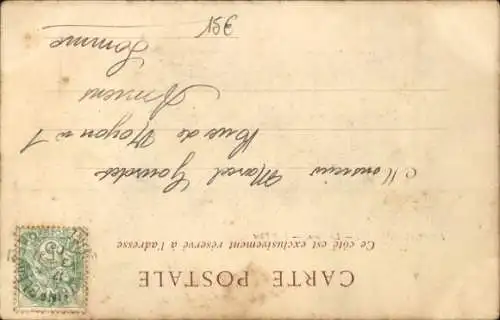 CARTE POSTALE
Ce côté est exclusivement réservé à l'adresse
Monsieur Marcel Gourdet
Rue de Noyon n 1
Amiens
Somme